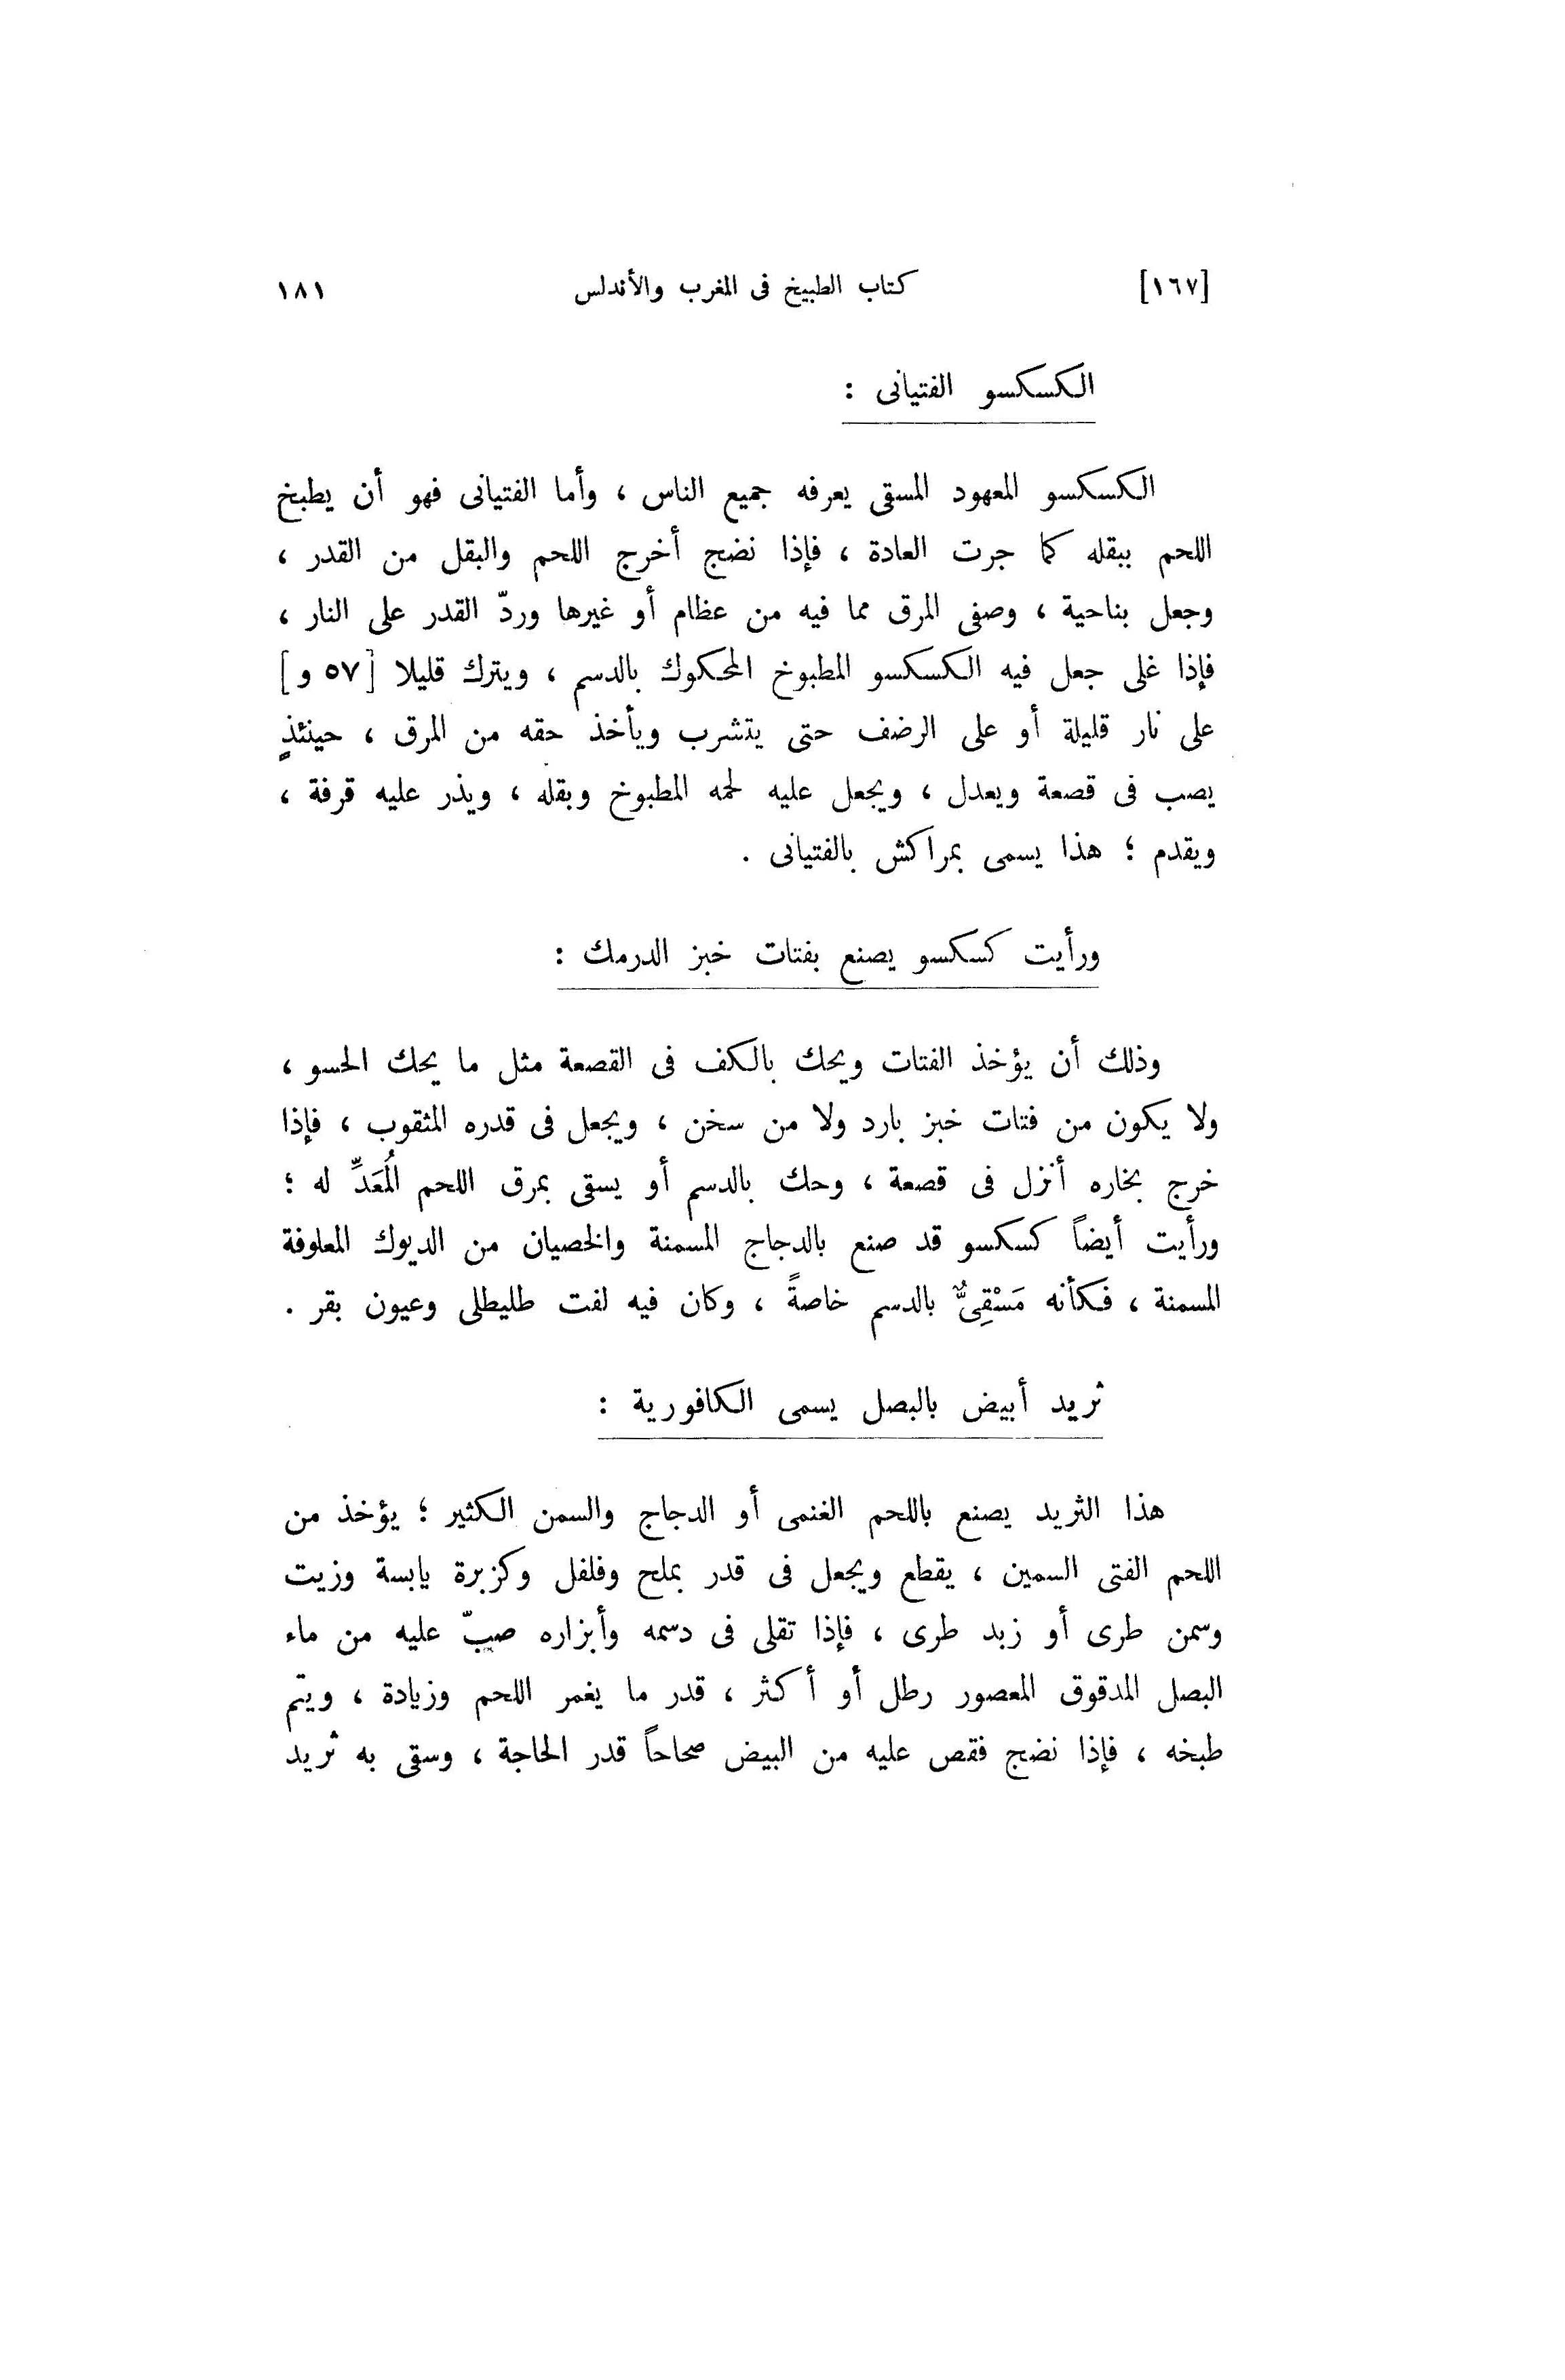 [١٦٧] كتاب الطبيخ فى المغرب والأندلس ١٨١
الكسكسو الفتيانى :
الكسكسو المعهود المسقى يعرفه جميع الناس ، وأما الفتيانى فهو أن يطبخ
اللحم ببقله كما جرت العادة ، فإذا نضج أخرج اللحم والبقل من القدر ،
وجعل بناحية ، وصفى المرق مما فيه من عظام أو غيرها وردّ القدر على النار ،
فإذا غلى جعل فيه الكسكسو المطبوخ المحكوك بالدسم ، ويترك قليلا [٥٧ و]
على نار قليلة أو على الرضف حتى يتشرب ويأخذ حقه من المرق ، حينئذٍ
يصب فى قصعة ويعدل ، ويجعل عليه لحمه المطبوخ وبقله ، ويذر عليه قرفة ،
ويقدم ؛ هذا يسمى بمراكش بالفتيانى .
ورأيت كسكسو يصنع بفتات خبز الدرمك :
وذلك أن يؤخذ الفتات ويحك بالكف فى القصعة مثل ما يحك الحسو ،
ولا يكون من فتات خبز بارد ولا من سخن ، ويجعل فى قدره المثقوب ، فإذا
خرج بخاره أنزل فى قصعة ، وحك بالدسم أو يسقى بمرق اللحم المُعَدِّ له ؛
ورأيت أيضاً كسكسو قد صنع بالدجاج المسمنة والخصيان من الديوك المعلوفة
المسمنة ، فكأنه مَسْقِىٌّ بالدسم خاصةً ، وكان فيه لفت طليطلى وعيون بقر .
ثريد أبيض بالبصل يسمى الكافورية :
هذا الثريد يصنع باللحم الغنمى أو الدجاج والسمن الكثير ؛ يؤخذ من
اللحم الفتى السمين ، يقطع ويجعل فى قدر بملح وفلفل وكزبرة يابسة وزيت
وسمن طرى أو زبد طرى ، فإذا تقلى فى دسمه وأبزاره صبّ عليه من ماء
البصل المدقوق المعصور رطل أو أكثر ، قدر ما يغمر اللحم وزيادة ، ويتم
طبخه ، فإذا نضج فقص عليه من البيض صحاحاً قدر الحاجة ، وسقى به ثريد